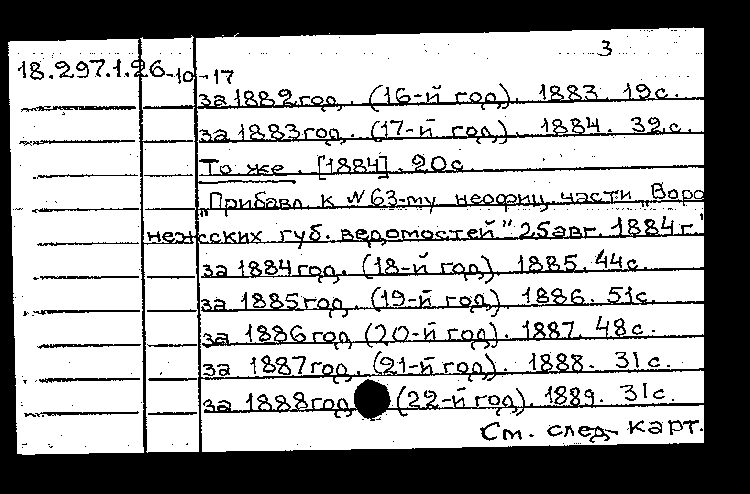 3
18.297.1.26-10-17
за 1882 год. (16-й год). 1883. 19с.
за 1883 год. (17-й год). 1884. 32с.
То же. [1884]. 20с.
"Прибавл. к N 63-му неофиц. части "Воро
нежских губ. ведомостей" 25 авг. 1884 г."
за 1884 год. (18-й год). 1885. 44с.
за 1885 год. (19-й год). 1886. 51с.
за 1886 год (20-й год). 1887. 48с.
за 1887 год. (21-й год). 1888. 31с.
за 1888 год (22-й год). 1889. 31с.
См. след. карт.